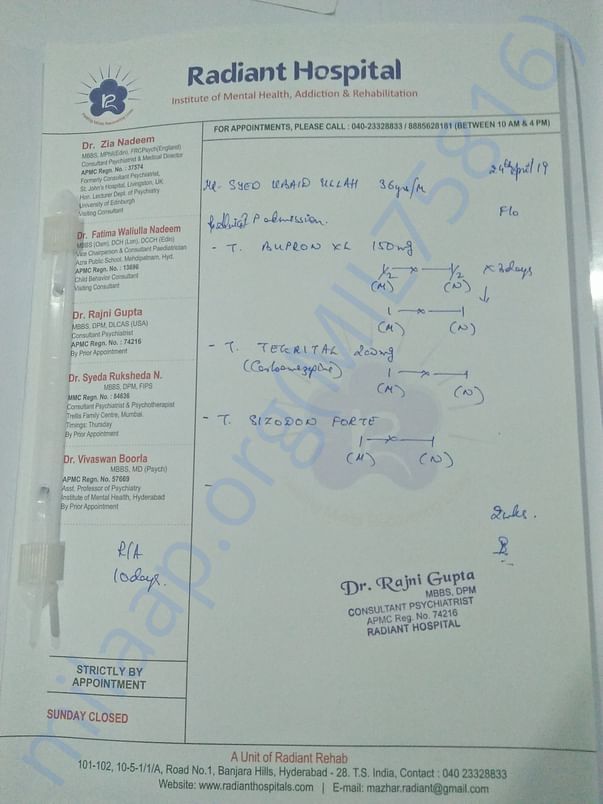 Radiant Hospital
Institute of Mental Health, Addiction & Rehabilitation
FOR APPOINTMENTS, PLEASE CALL : 040-23328833 / 8885628181 (BETWEEN 10 AM & 4 PM)
Dr. Zia Nadeem
MBBS, MPhil(Edin), FRCPsych(England)
Consultant Psychiatrist & Medical Director
APMC Regn. No. : 37574
Formerly Consultant Psychiatrist,
St. John's Hospital, Livingston, UK
Hon. Lecturer Dept. of Psychiatry
University of Edinburgh
Visiting Consultant
Dr. Fatima Waliulla Nadeem
MBBS (Osm), DCH (Lon), DCCH (Edin)
Vice Chairperson & Consultant Paediatrician
Azra Public School, Mehdipatnam, Hyd.
APMC Regn. No. : 13698
Child Behavior Consultant
Visiting Consultant
Dr. Rajni Gupta
MBBS, DPM, DLCAS (USA)
Consultant Psychiatrist
APMC Regn. No. : 74216
By Prior Appointment
Dr. Syeda Ruksheda N.
MBBS, DPM, FIPS
MMC Regn. No. : 84636
Consultant Psychiatrist & Psychotherapist
Trellis Family Centre, Mumbai.
Timings: Thursday
By Prior Appointment
Dr. Vivaswan Boorla
MBBS, MD (Psych)
APMC Regn. No. 57669
Asst. Professor of Psychiatry
Institute of Mental Health, Hyderabad
By Prior Appointment
R/A
10 days.
STRICTLY BY
APPOINTMENT
SUNDAY CLOSED
24th April 19
Mr. SYED UBAID ULLAH 36yrs/M
F/o
admission.
- T. BUPRON XL 150mg
1/2 — x — 1/2 x 3days
(M) (N)
1 — x — 1
(M) (N)
- T. TEGRITAL 200mg
(Carbamezepine) 1 — x — 1
(M) (N)
- T. SIZODON FORTE
1 — x — 1
(M) (N)
-
2wks.
Dr. Rajni Gupta
MBBS, DPM
CONSULTANT PSYCHIATRIST
APMC Reg. No. 74216
RADIANT HOSPITAL
A Unit of Radiant Rehab
101-102, 10-5-1/1/A, Road No.1, Banjara Hills, Hyderabad - 28. T.S. India, Contact : 040 23328833
Website: www.radianthospitals.com | E-mail: mazhar.radiant@gmail.com
milaap.org(MIL75816)